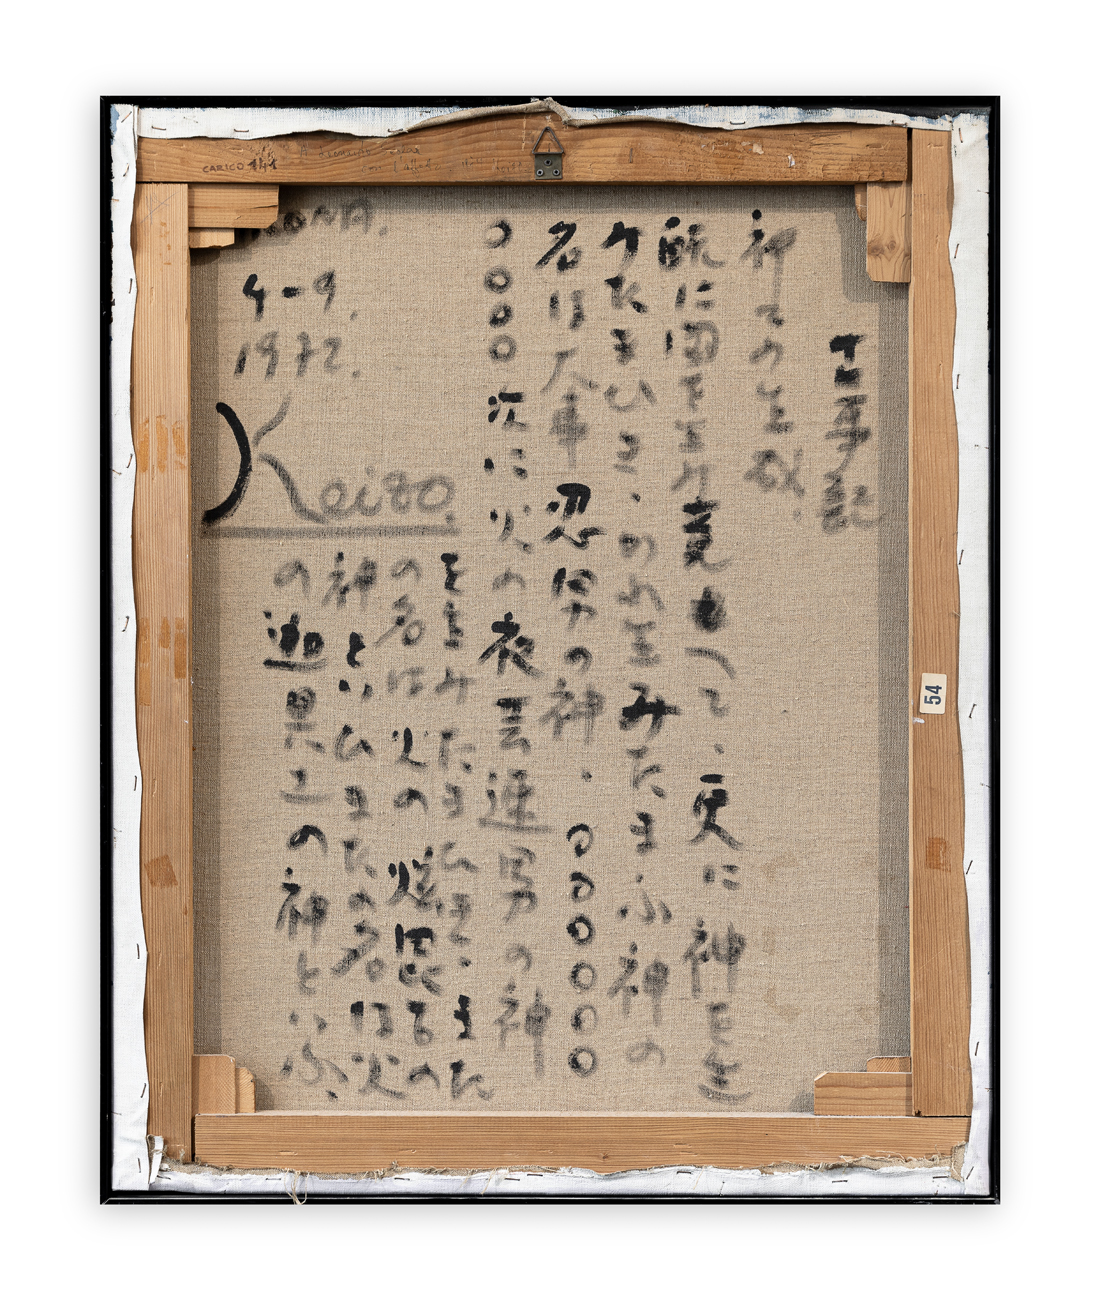 古事記
神々の生成.
既に国を生み竟って、更に神を生
みたまひき、かれ生みたまふ神の
名は大事忍男の神、〇〇〇〇〇〇
〇〇〇〇次に火の夜芸速男の神
を生みたまひき、また
の名は火の炫毘古の
神といひまたの名は火
の迦具土の神といふ.
RONA.
4-9.
1972.
Keizo.
CARICO 141
54